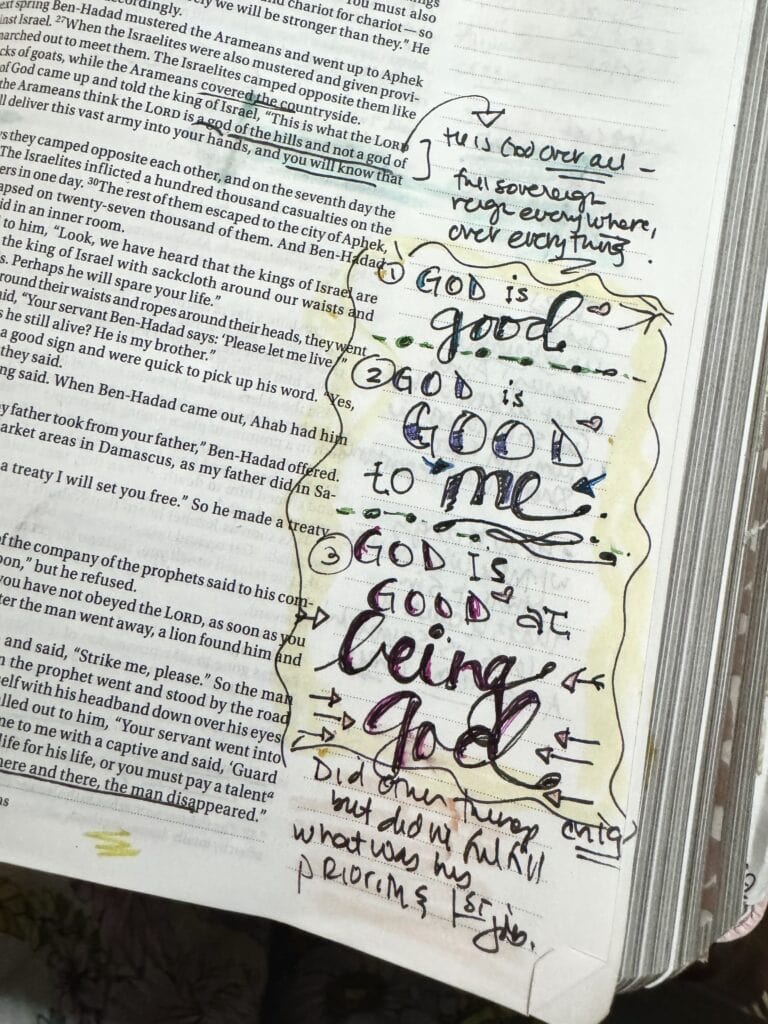 You must also
ext spring Ben-Hadad mustered the Arameans and went up to Aphek
inst Israel. 27When the Israelites were also mustered and given provi-
marched out to meet them. The Israelites camped opposite them like
cks of goats, while the Arameans covered the countryside.
of God came up and told the king of Israel, "This is what the LORD
the Arameans think the LORD is a god of the hills and not a god of
ll deliver this vast army into your hands, and you will know that
ys they camped opposite each other, and on the seventh day the
The Israelites inflicted a hundred thousand casualties on the
ers in one day. 30The rest of them escaped to the city of Aphek,
apsed on twenty-seven thousand of them. And Ben-Hadad
id in an inner room.
d to him, "Look, we have heard that the kings of Israel are
the king of Israel with sackcloth around our waists and
s. Perhaps he will spare your life."
round their waists and ropes around their heads, they went
aid, "Your servant Ben-Hadad says: 'Please let me live.'"
s he still alive? He is my brother."
a good sign and were quick to pick up his word. "Yes,
they said.
ng said. When Ben-Hadad came out, Ahab had him
y father took from your father," Ben-Hadad offered.
arket areas in Damascus, as my father did in Sa-
a treaty I will set you free." So he made a treaty
of the company of the prophets said to his com-
pon," but he refused.
you have not obeyed the LORD, as soon as you
ter the man went away, a lion found him and
and said, "Strike me, please." So the man
n the prophet went and stood by the road
self with his headband down over his eyes
lled out to him, "Your servant went into
me to me with a captive and said, 'Guard
life for his life, or you must pay a talent
here and there, the man disappeared."
He is God over all –
full sovereign
reign everywhere,
over everything.
1 GOD is
good
2 GOD is
GOOD
to me.
3 GOD IS
GOOD at
being
god
Did other things
but didn't fulfill
what was his
PRIORITY & 1st
job.